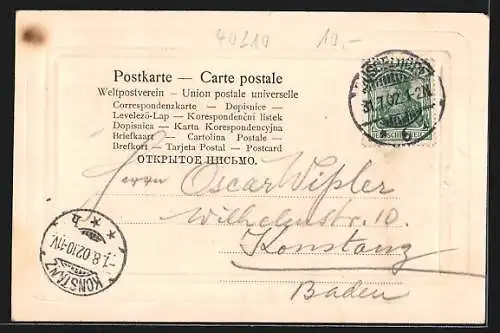 40210 10.-
Postkarte — Carte postale
Weltpostverein — Union postale universelle
Correspondenzkarte — Dopisnice —
Levelező-Lap — Korespondenční listek
Dopisnica — Karta Korespondencyjna
Briefkaart — Cartolina Postale —
Brefkort — Tarjeta Postal — Postcard
ОТКРЫТОЕ ПИСЬМО.
31.7.02
Herrn Oscar Vipler
Wilhelmstr. 10
Konstanz
Baden
KONSTANZ
1.8.02.10-11V.